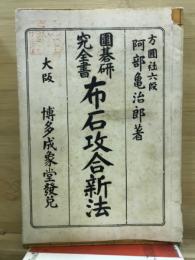 方圓社六段 阿部亀治郎著
圍碁研究全書
布石攻合新法
大阪 博多成象堂發兌